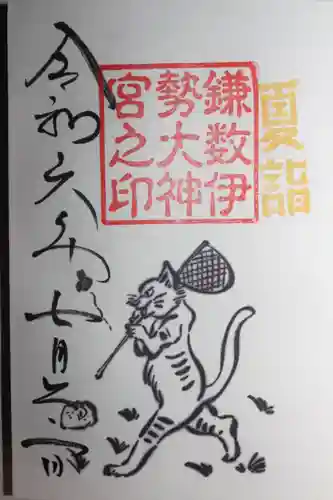 夏詣
鎌数伊
勢大神
宮之印
令和六年七月 日